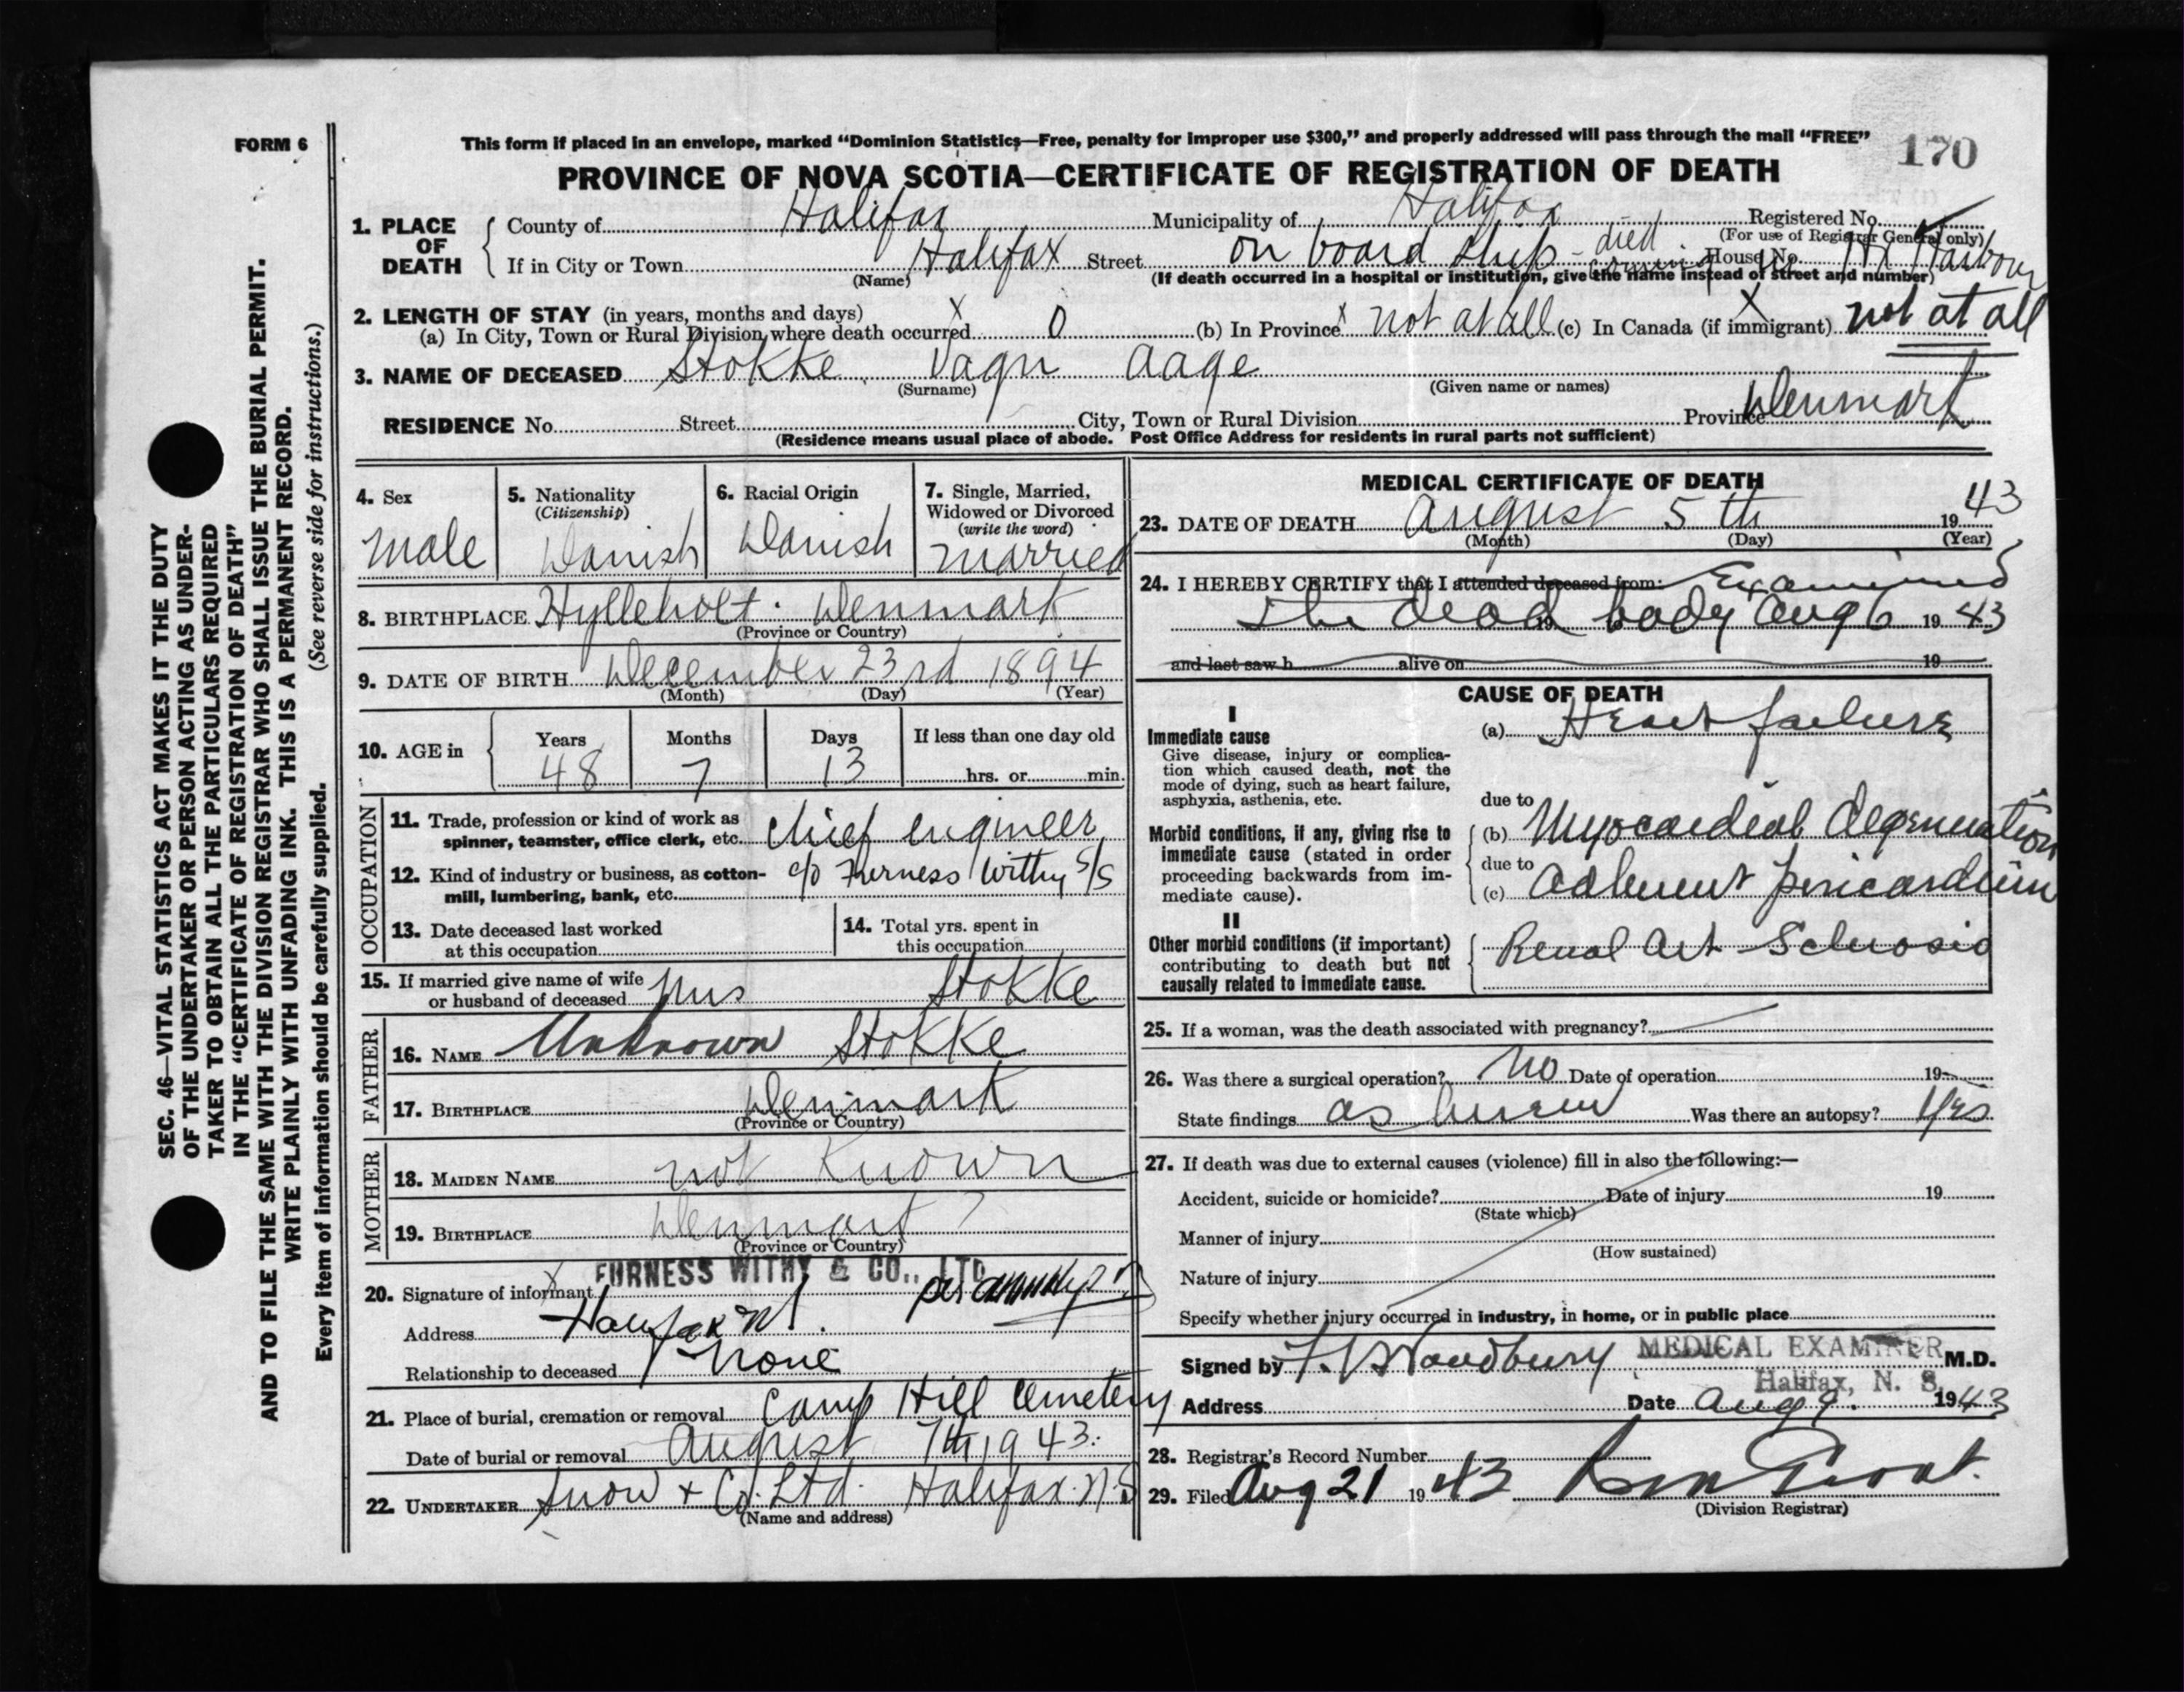 FORM 6
This form if placed in an envelope, marked “Dominion Statistics—Free, penalty for improper use $300,” and properly addressed will pass through the mail “FREE”
170
PROVINCE OF NOVA SCOTIA—CERTIFICATE OF REGISTRATION OF DEATH
1. PLACE OF DEATH
County of Halifax Municipality of Halifax Registered No.
(For use of Registrar General only)
If in City or Town Halifax Street on board ship - died coming House No. Hx Harbour
(Name) (If death occurred in a hospital or institution, give the name instead of street and number)
2. LENGTH OF STAY (in years, months and days)
(a) In City, Town or Rural Division where death occurred x 0 (b) In Province x not at all (c) In Canada (if immigrant) x not at all
3. NAME OF DECEASED Stokke Vagn Aage
(Surname) (Given name or names)
RESIDENCE No. Street City, Town or Rural Division Province Denmark
(Residence means usual place of abode. Post Office Address for residents in rural parts not sufficient)
4. Sex
male
5. Nationality
(Citizenship)
Danish
6. Racial Origin
Danish
7. Single, Married,
Widowed or Divorced
(write the word)
married
8. BIRTHPLACE Hylleholt. Denmark
(Province or Country)
9. DATE OF BIRTH December 23rd 1894
(Month) (Day) (Year)
10. AGE in
Years Months Days If less than one day old
48 7 13 hrs. or min.
OCCUPATION
11. Trade, profession or kind of work as
spinner, teamster, office clerk, etc. chief engineer
12. Kind of industry or business, as cotton-
mill, lumbering, bank, etc. c/o Furness Withy S/S
13. Date deceased last worked
at this occupation
14. Total yrs. spent in
this occupation
15. If married give name of wife
or husband of deceased Mrs Stokke
FATHER
16. NAME Unknown Stokke
17. BIRTHPLACE Denmark
(Province or Country)
MOTHER
18. MAIDEN NAME not known
19. BIRTHPLACE Denmark ?
(Province or Country)
20. Signature of informant x FURNESS WITHY & CO., LTD per
Address Halifax NS.
Relationship to deceased None
21. Place of burial, cremation or removal Camp Hill Cemetery
Date of burial or removal August 7th 1943.
22. UNDERTAKER Snow + Co. Ltd. Halifax. N.S
(Name and address)
MEDICAL CERTIFICATE OF DEATH
23. DATE OF DEATH August 5th 1943
(Month) (Day) (Year)
24. I HEREBY CERTIFY that I attended deceased from: Examined
the dead body Aug 6 19 43
and last saw h alive on 19
CAUSE OF DEATH
I
Immediate cause
Give disease, injury or complica-
tion which caused death, not the
mode of dying, such as heart failure,
asphyxia, asthenia, etc.
(a) Heart failure
due to
Morbid conditions, if any, giving rise to
immediate cause (stated in order
proceeding backwards from im-
mediate cause).
(b) Myocardial degeneration
due to
(c) Adherent pericardium
II
Other morbid conditions (if important)
contributing to death but not
causally related to immediate cause.
Renal Art Sclerosis
25. If a woman, was the death associated with pregnancy?
26. Was there a surgical operation? No Date of operation 19
State findings as herein Was there an autopsy? Yes
27. If death was due to external causes (violence) fill in also the following:—
Accident, suicide or homicide? Date of injury 19
(State which)
Manner of injury
(How sustained)
Nature of injury
Specify whether injury occurred in industry, in home, or in public place
Signed by F. V. Woodbury MEDICAL EXAMINER M.D.
Halifax, N. S.
Address Date Aug 9. 1943
28. Registrar’s Record Number
29. Filed Aug 21 19 43
(Division Registrar)
SEC. 46—VITAL STATISTICS ACT MAKES IT THE DUTY
OF THE UNDERTAKER OR PERSON ACTING AS UNDER-
TAKER TO OBTAIN ALL THE PARTICULARS REQUIRED
IN THE “CERTIFICATE OF REGISTRATION OF DEATH”
AND TO FILE THE SAME WITH THE DIVISION REGISTRAR WHO SHALL ISSUE THE BURIAL PERMIT.
WRITE PLAINLY WITH UNFADING INK. THIS IS A PERMANENT RECORD.
(See reverse side for instructions.)
Every item of information should be carefully supplied.